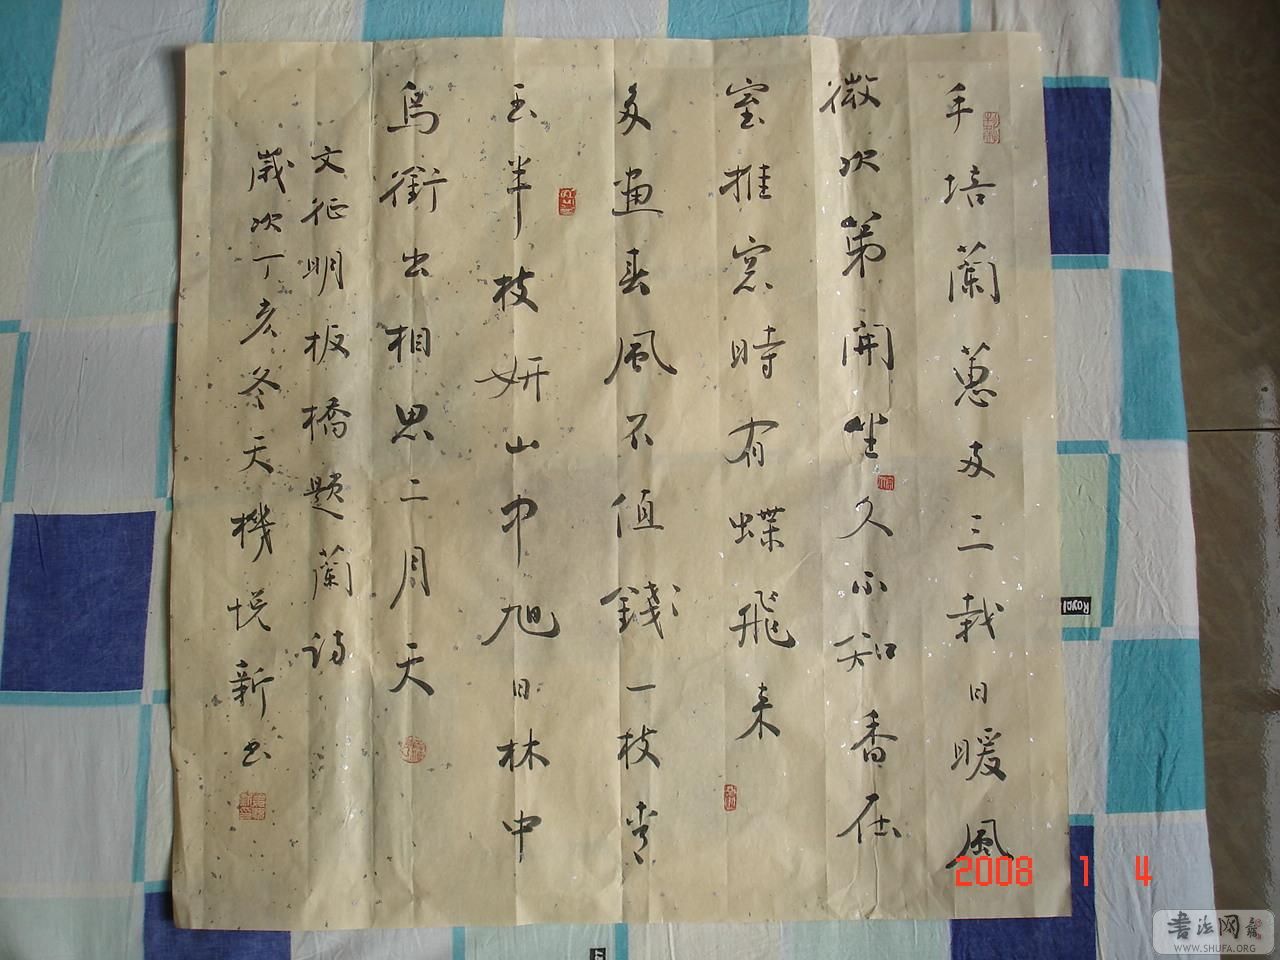 手培蘭蕙两三栽日暖風
微次第開坐久不知香在
室推窓時有蝶飛来
多畫春風不值錢一枝青
玉半枝妍山中旭日林中
鳥銜出相思二月天
文征明板橋题蘭诗
歲次丁亥冬天機悦新书
2008 1 4
Royal
书法网
WWW.SHUFA.ORG